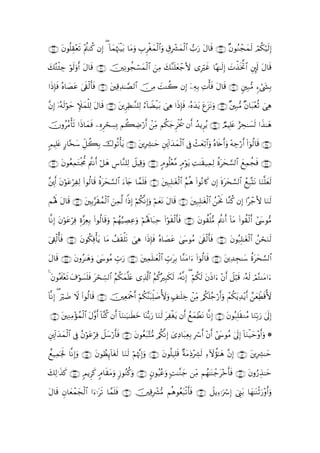 إِلَيْكُمْ لَمَجْنُونٌ ۝ قَالَ رَبُّ الْمَشْرِقِ وَالْمَغْرِبِ وَمَا بَيْنَهُمَا ۖ إِن كُنتُمْ تَعْقِلُونَ ۝
قَالَ لَئِنِ اتَّخَذْتَ إِلَٰهًا غَيْرِي لَأَجْعَلَنَّكَ مِنَ الْمَسْجُونِينَ ۝ قَالَ أَوَلَوْ جِئْتُكَ
بِشَيْءٍ مُّبِينٍ ۝ قَالَ فَأْتِ بِهِ إِن كُنتَ مِنَ الصَّادِقِينَ ۝ فَأَلْقَىٰ عَصَاهُ فَإِذَا
هِيَ ثُعْبَانٌ مُّبِينٌ ۝ وَنَزَعَ يَدَهُ فَإِذَا هِيَ بَيْضَاءُ لِلنَّاظِرِينَ ۝ قَالَ لِلْمَلَإِ حَوْلَهُ إِنَّ
هَٰذَا لَسَاحِرٌ عَلِيمٌ ۝ يُرِيدُ أَن يُخْرِجَكُم مِّنْ أَرْضِكُم بِسِحْرِهِ فَمَاذَا تَأْمُرُونَ ۝
قَالُوا أَرْجِهْ وَأَخَاهُ وَابْعَثْ فِي الْمَدَائِنِ حَاشِرِينَ ۝ يَأْتُوكَ بِكُلِّ سَحَّارٍ عَلِيمٍ
۝ فَجُمِعَ السَّحَرَةُ لِمِيقَاتِ يَوْمٍ مَّعْلُومٍ ۝ وَقِيلَ لِلنَّاسِ هَلْ أَنتُم مُّجْتَمِعُونَ ۝
لَعَلَّنَا نَتَّبِعُ السَّحَرَةَ إِن كَانُوا هُمُ الْغَالِبِينَ ۝ فَلَمَّا جَاءَ السَّحَرَةُ قَالُوا لِفِرْعَوْنَ أَئِنَّ
لَنَا لَأَجْرًا إِن كُنَّا نَحْنُ الْغَالِبِينَ ۝ قَالَ نَعَمْ وَإِنَّكُمْ إِذًا لَّمِنَ الْمُقَرَّبِينَ ۝ قَالَ لَهُم
مُّوسَىٰ أَلْقُوا مَا أَنتُم مُّلْقُونَ ۝ فَأَلْقَوْا حِبَالَهُمْ وَعِصِيَّهُمْ وَقَالُوا بِعِزَّةِ فِرْعَوْنَ إِنَّا
لَنَحْنُ الْغَالِبُونَ ۝ فَأَلْقَىٰ مُوسَىٰ عَصَاهُ فَإِذَا هِيَ تَلْقَفُ مَا يَأْفِكُونَ ۝ فَأُلْقِيَ
السَّحَرَةُ سَاجِدِينَ ۝ قَالُوا آمَنَّا بِرَبِّ الْعَالَمِينَ ۝ رَبِّ مُوسَىٰ وَهَارُونَ ۝ قَالَ
آمَنتُمْ لَهُ قَبْلَ أَنْ آذَنَ لَكُمْ ۖ إِنَّهُ لَكَبِيرُكُمُ الَّذِي عَلَّمَكُمُ السِّحْرَ فَلَسَوْفَ تَعْلَمُونَ ۚ
لَأُقَطِّعَنَّ أَيْدِيَكُمْ وَأَرْجُلَكُم مِّنْ خِلَافٍ وَلَأُصَلِّبَنَّكُمْ أَجْمَعِينَ ۝ قَالُوا لَا ضَيْرَ ۖ إِنَّا
إِلَىٰ رَبِّنَا مُنقَلِبُونَ ۝ إِنَّا نَطْمَعُ أَن يَغْفِرَ لَنَا رَبُّنَا خَطَايَانَا أَن كُنَّا أَوَّلَ الْمُؤْمِنِينَ ۝
۞ وَأَوْحَيْنَا إِلَىٰ مُوسَىٰ أَنْ أَسْرِ بِعِبَادِي إِنَّكُم مُّتَّبَعُونَ ۝ فَأَرْسَلَ فِرْعَوْنُ فِي الْمَدَائِنِ
حَاشِرِينَ ۝ إِنَّ هَٰؤُلَاءِ لَشِرْذِمَةٌ قَلِيلُونَ ۝ وَإِنَّهُمْ لَنَا لَغَائِظُونَ ۝ وَإِنَّا لَجَمِيعٌ
حَاذِرُونَ ۝ فَأَخْرَجْنَاهُم مِّن جَنَّاتٍ وَعُيُونٍ ۝ وَكُنُوزٍ وَمَقَامٍ كَرِيمٍ ۝ كَذَٰلِكَ
وَأَوْرَثْنَاهَا بَنِي إِسْرَائِيلَ ۝ فَأَتْبَعُوهُم مُّشْرِقِينَ ۝ فَلَمَّا تَرَاءَى الْجَمْعَانِ قَالَ